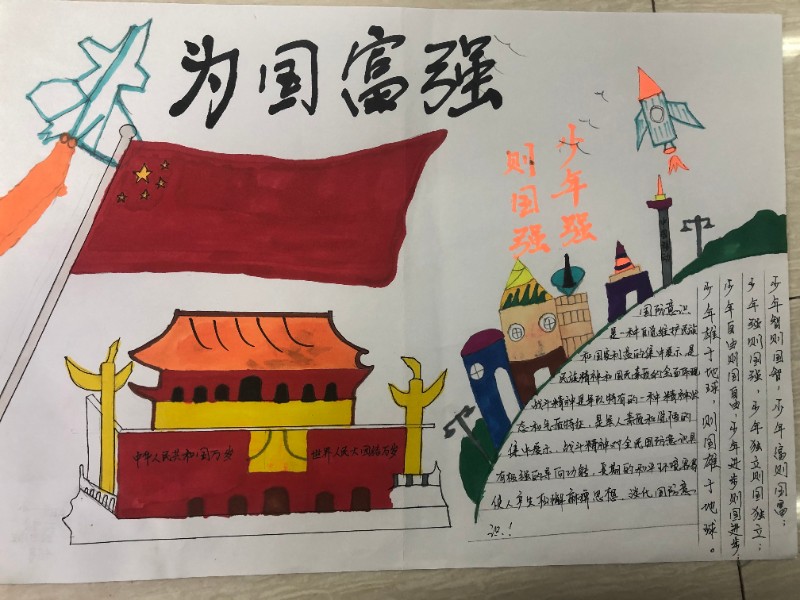 为国富强
少年强
则国强
中华人民共和国万岁
世界人民大团结万岁
国防意识
是一种自觉维护民族
和国家利益的集中展示,是
民族精神和国民素质的全面体现
战斗精神是军队特有的一种精神状
态和气质特征,是军人素质和觉悟的
集中展示,战斗精神对全民国防意识具
有极强的导向功能,长期的和平环境容易
使人产生松懈麻痹思想,淡化国防意
识!!
少年智则国智,少年富则国富;
少年强则国强,少年独立则国独立;
少年自由则国自由,少年进步则国进步;
少年雄于地球,则国雄于地球。